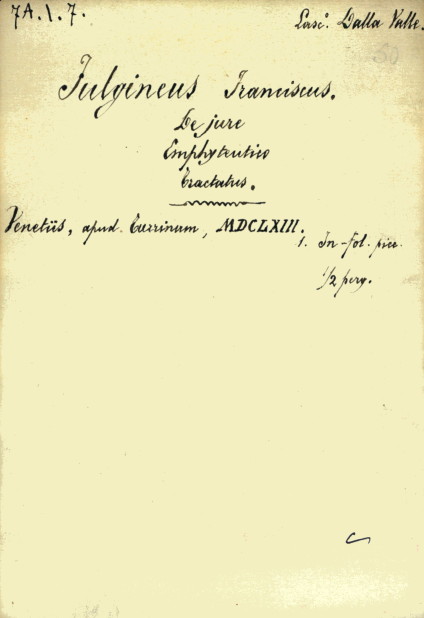 7A.1.7. Lasc. Dalla Valle.
Fulgineus Franciscus.
De jure
Emphyteutico
Tractatus.
Venetiis, apud. Turrinum, MDCLXIII.
1. In-fol. picc.
1/2 perg.